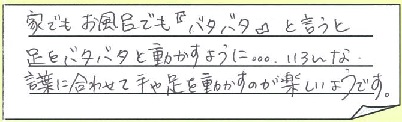 家でもお風呂でも『バタバタ』と言うと
足をバタバタと動かすように…. いろんな.
言葉に合わせて手や足を動かすのが楽しいようです。